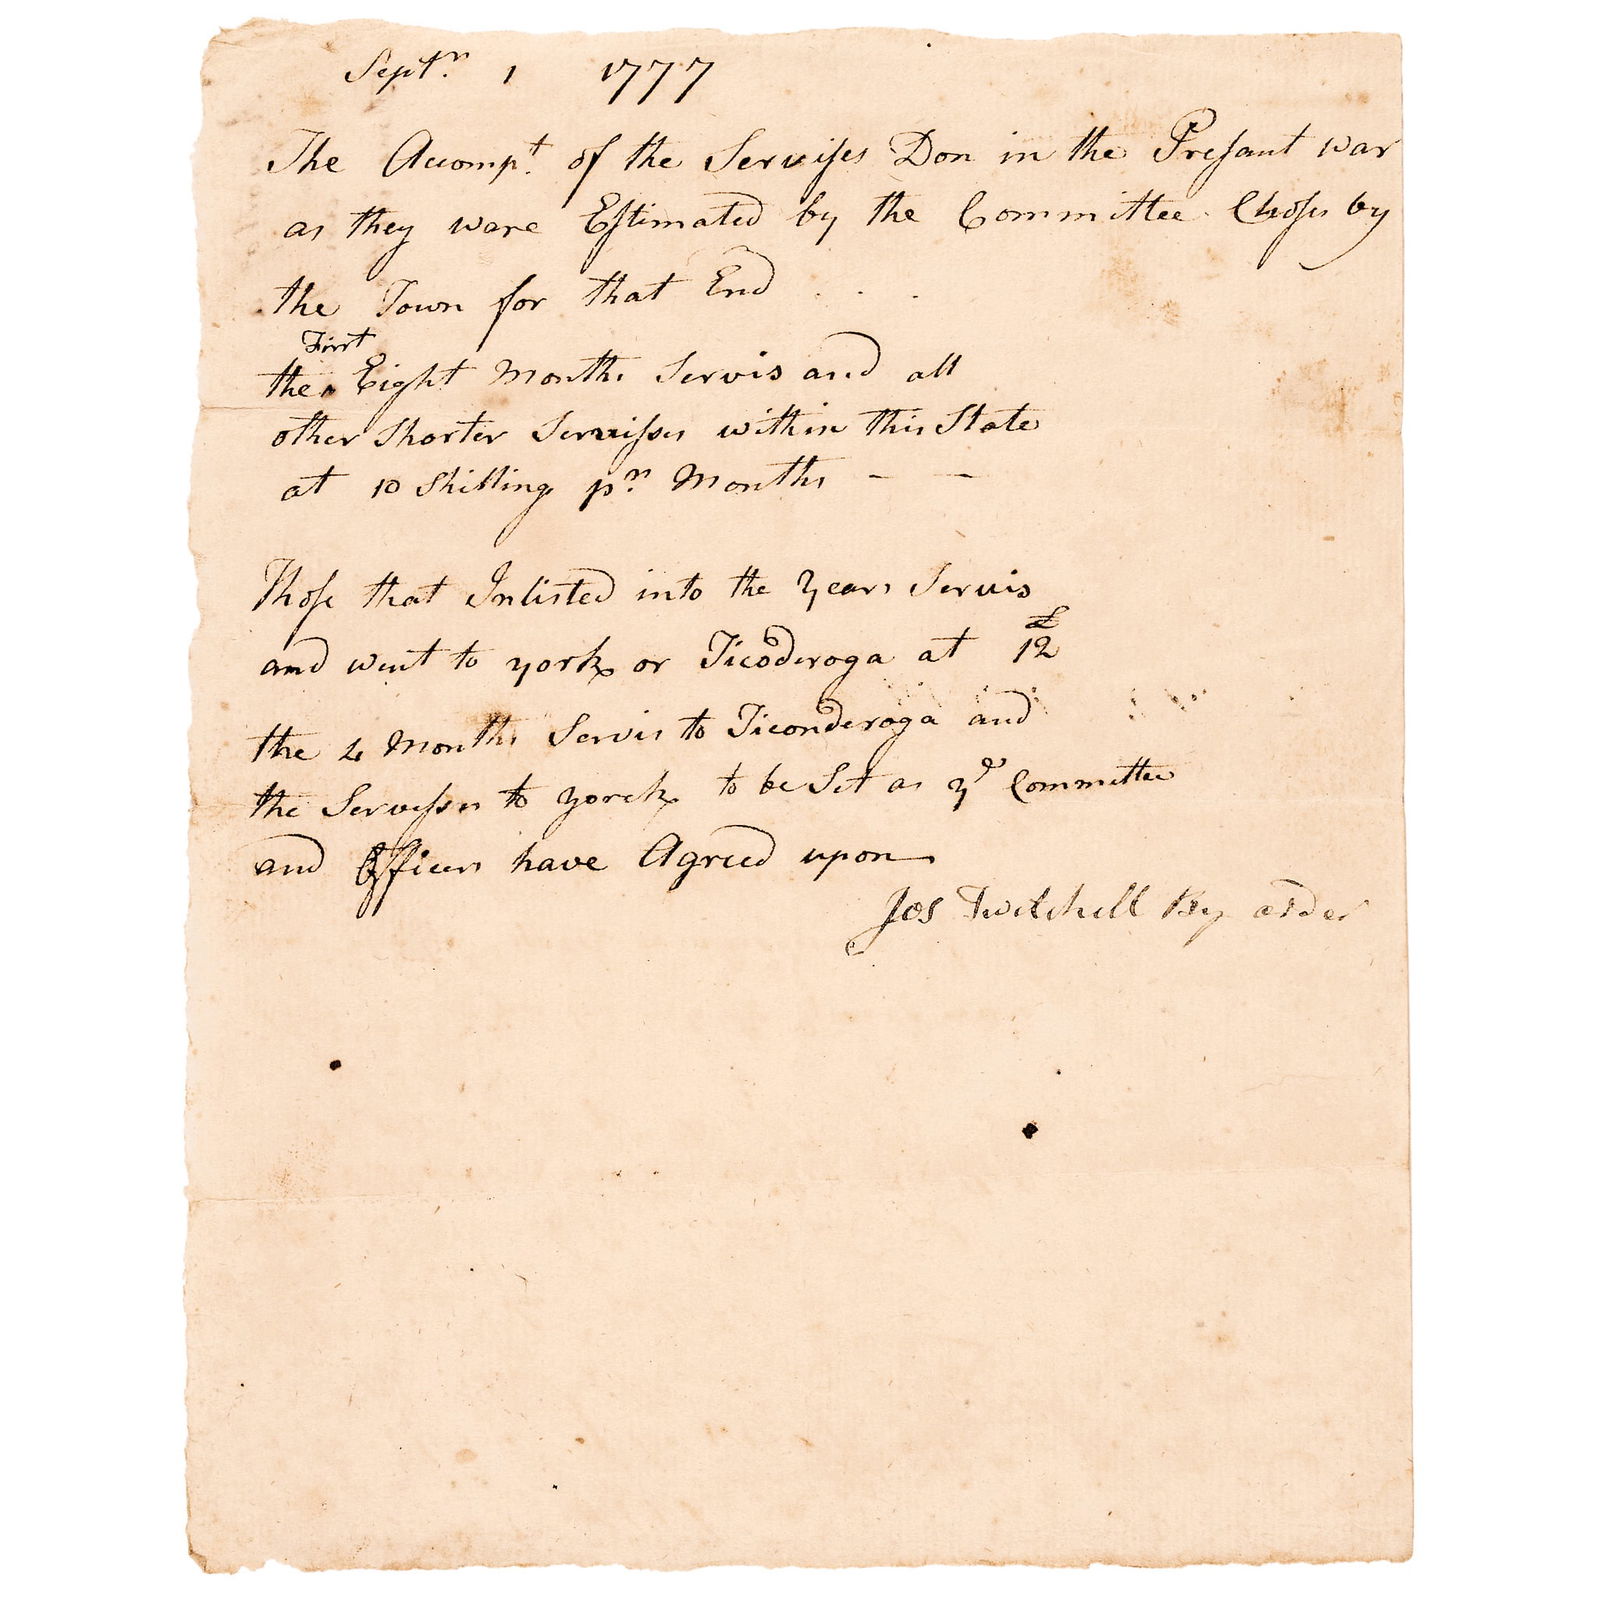 Septr. 1 1777
The Accompt. of the Servises Don in the Presant war
as they ware Estimated by the Committee Chosen by
the Town for that End . . .
First
the Eight Months Servis and all
other Shorter Servisses within this State
at 10 Shillings pr. Months - -
Those that Inlisted into the Years Servis
£
and went to york or Ticoderoga at 12
the 4 Months Servis to Ticonderoga and
the Servisses to Yorck to be Set as ye Committee
and Officers have Agreed upon
Jos Twitchell By order